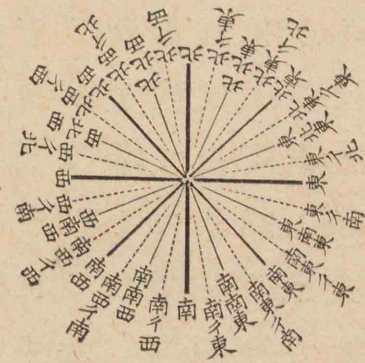 北
北彳東
北北東
北東彳北
北東
北東彳東
東北東
東彳北
東
東彳南
東南東
南東彳東
南東
南東彳南
南南東
南彳東
南
南彳西
南南西
南西彳南
南西
南西彳西
西南西
西彳南
西
西彳北
西北西
北西彳西
北西
北西彳北
北北西
北彳西